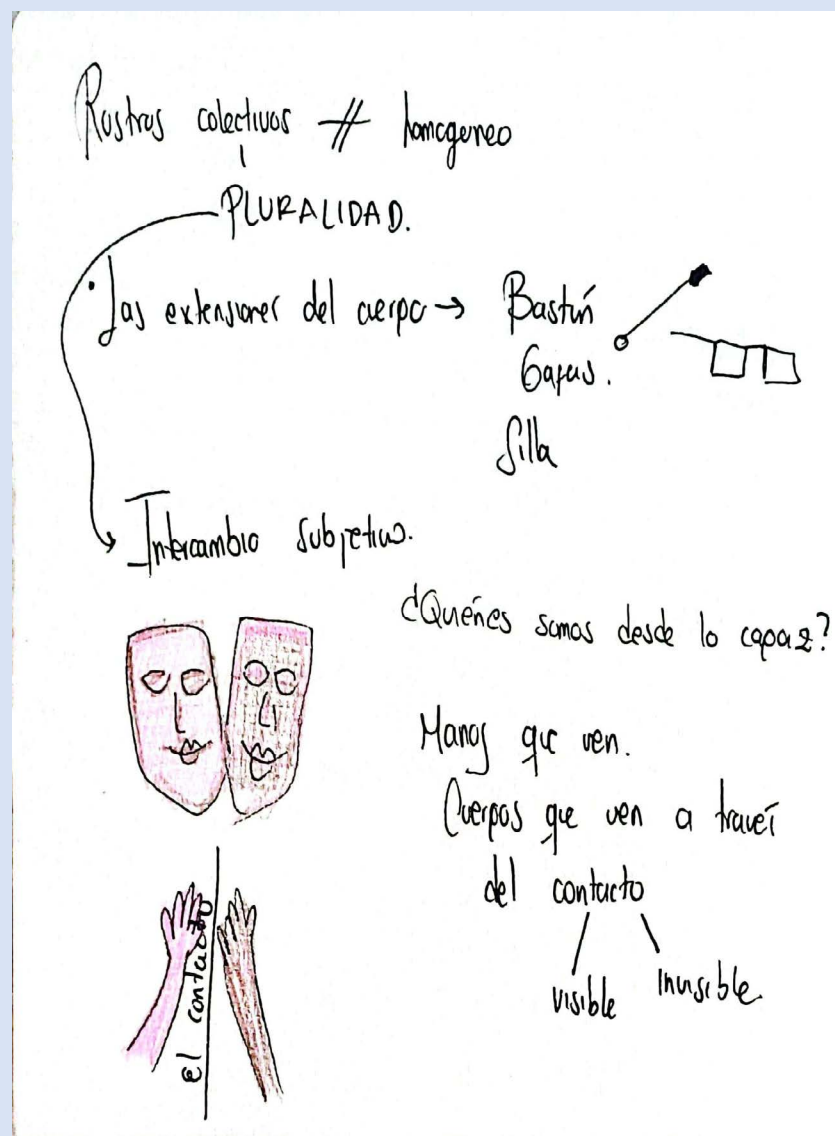 Rostros colectivos ≠ homogeneo
PLURALIDAD.
· Las extensiones del cuerpo → Bastón
Gafas.
Silla
Intercambio subjetivo.
¿Quiénes somos desde lo capaz?
Manos que ven.
Cuerpos que ven a través
del contacto
visible invisible.
el contacto